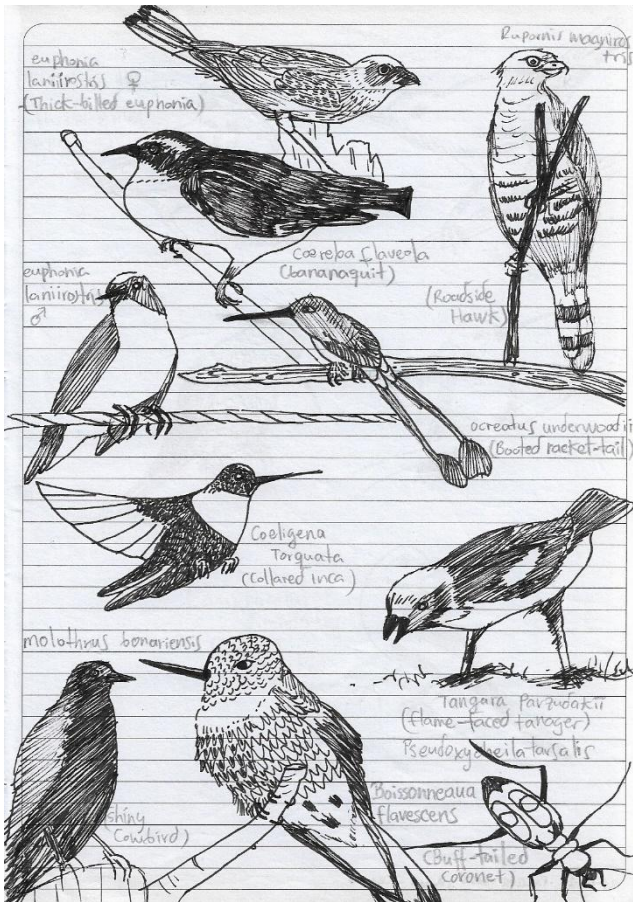 euphonia
laniirostris ♀
(Thick-billed euphonia)
Rupornis magniros
tris
Coereba flaveola
(bananaquit)
euphonia
laniirostris
♂
(Roadside
Hawk)
ocreatus underwoodii
(Booted racket-tail)
Coeligena
Torquata
(Collared inca)
molothrus bonariensis
Tangara Parzudakii
(flame-faced tanager)
Pseudoxycheila tarsalis
(shiny
Cowbird)
Boissonneaua
flavescens
(Buff-tailed
Coronet)